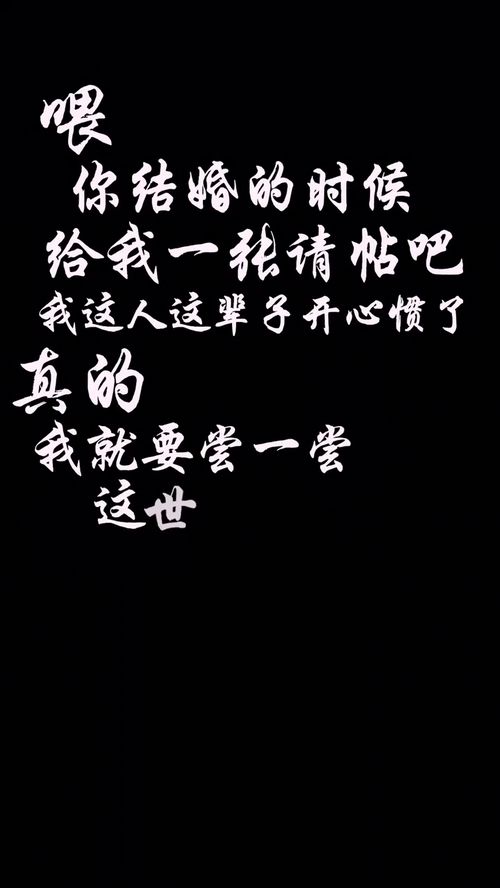 喂
你结婚的时候
给我一张请帖吧
我这人这辈子开心惯了
真的
我就要尝一尝
这世